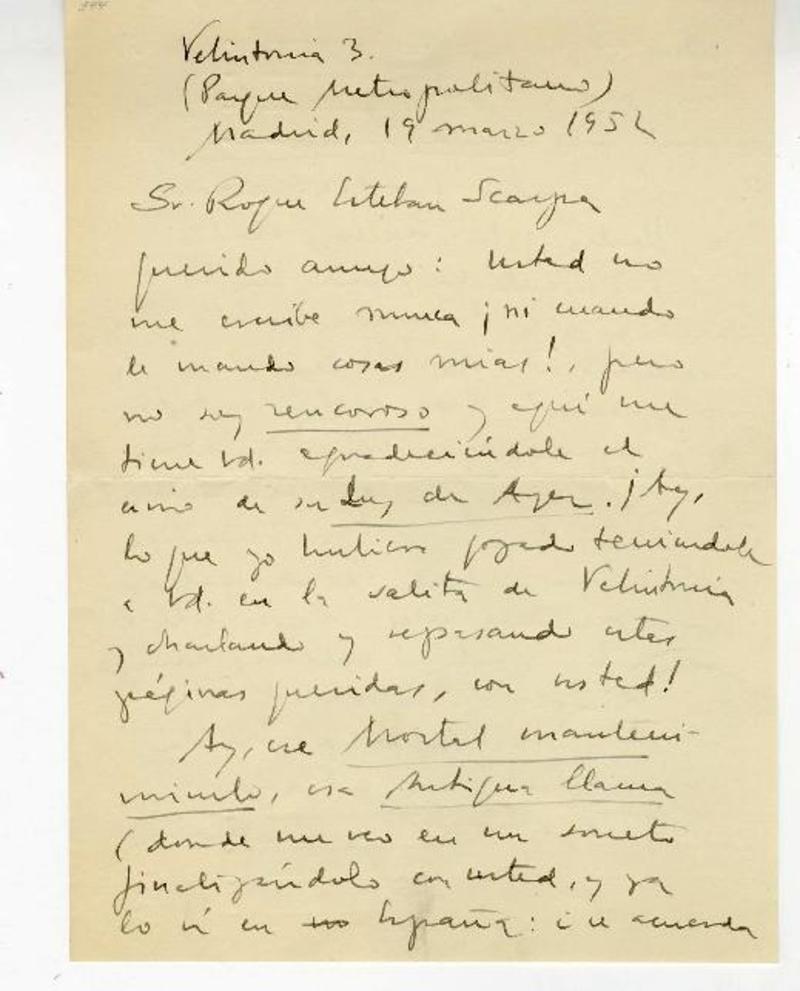 Velintonia 3.
(Parque Metropolitano)
Madrid, 19 marzo 1952
Sr. Roque Esteban Scarpa
Querido amigo: Usted no
me escribe nunca ¡ni cuando
le mando cosas mías!, pero
no soy rencoroso y aquí me
tiene Vd. agradeciéndole el
envío de su Luz de Ayer. ¡Ay,
lo que yo hubiera gozado teniéndole
a Vd. en la salita de Velintonia
y charlando y repasando estas
páginas queridas, con usted!
Ay, ese Mortal manteni-
miento, esa Antigua llama
(donde me veo en un soneto
finalizándolo con usted, y ya
lo vi en no España: ¿se acuerda